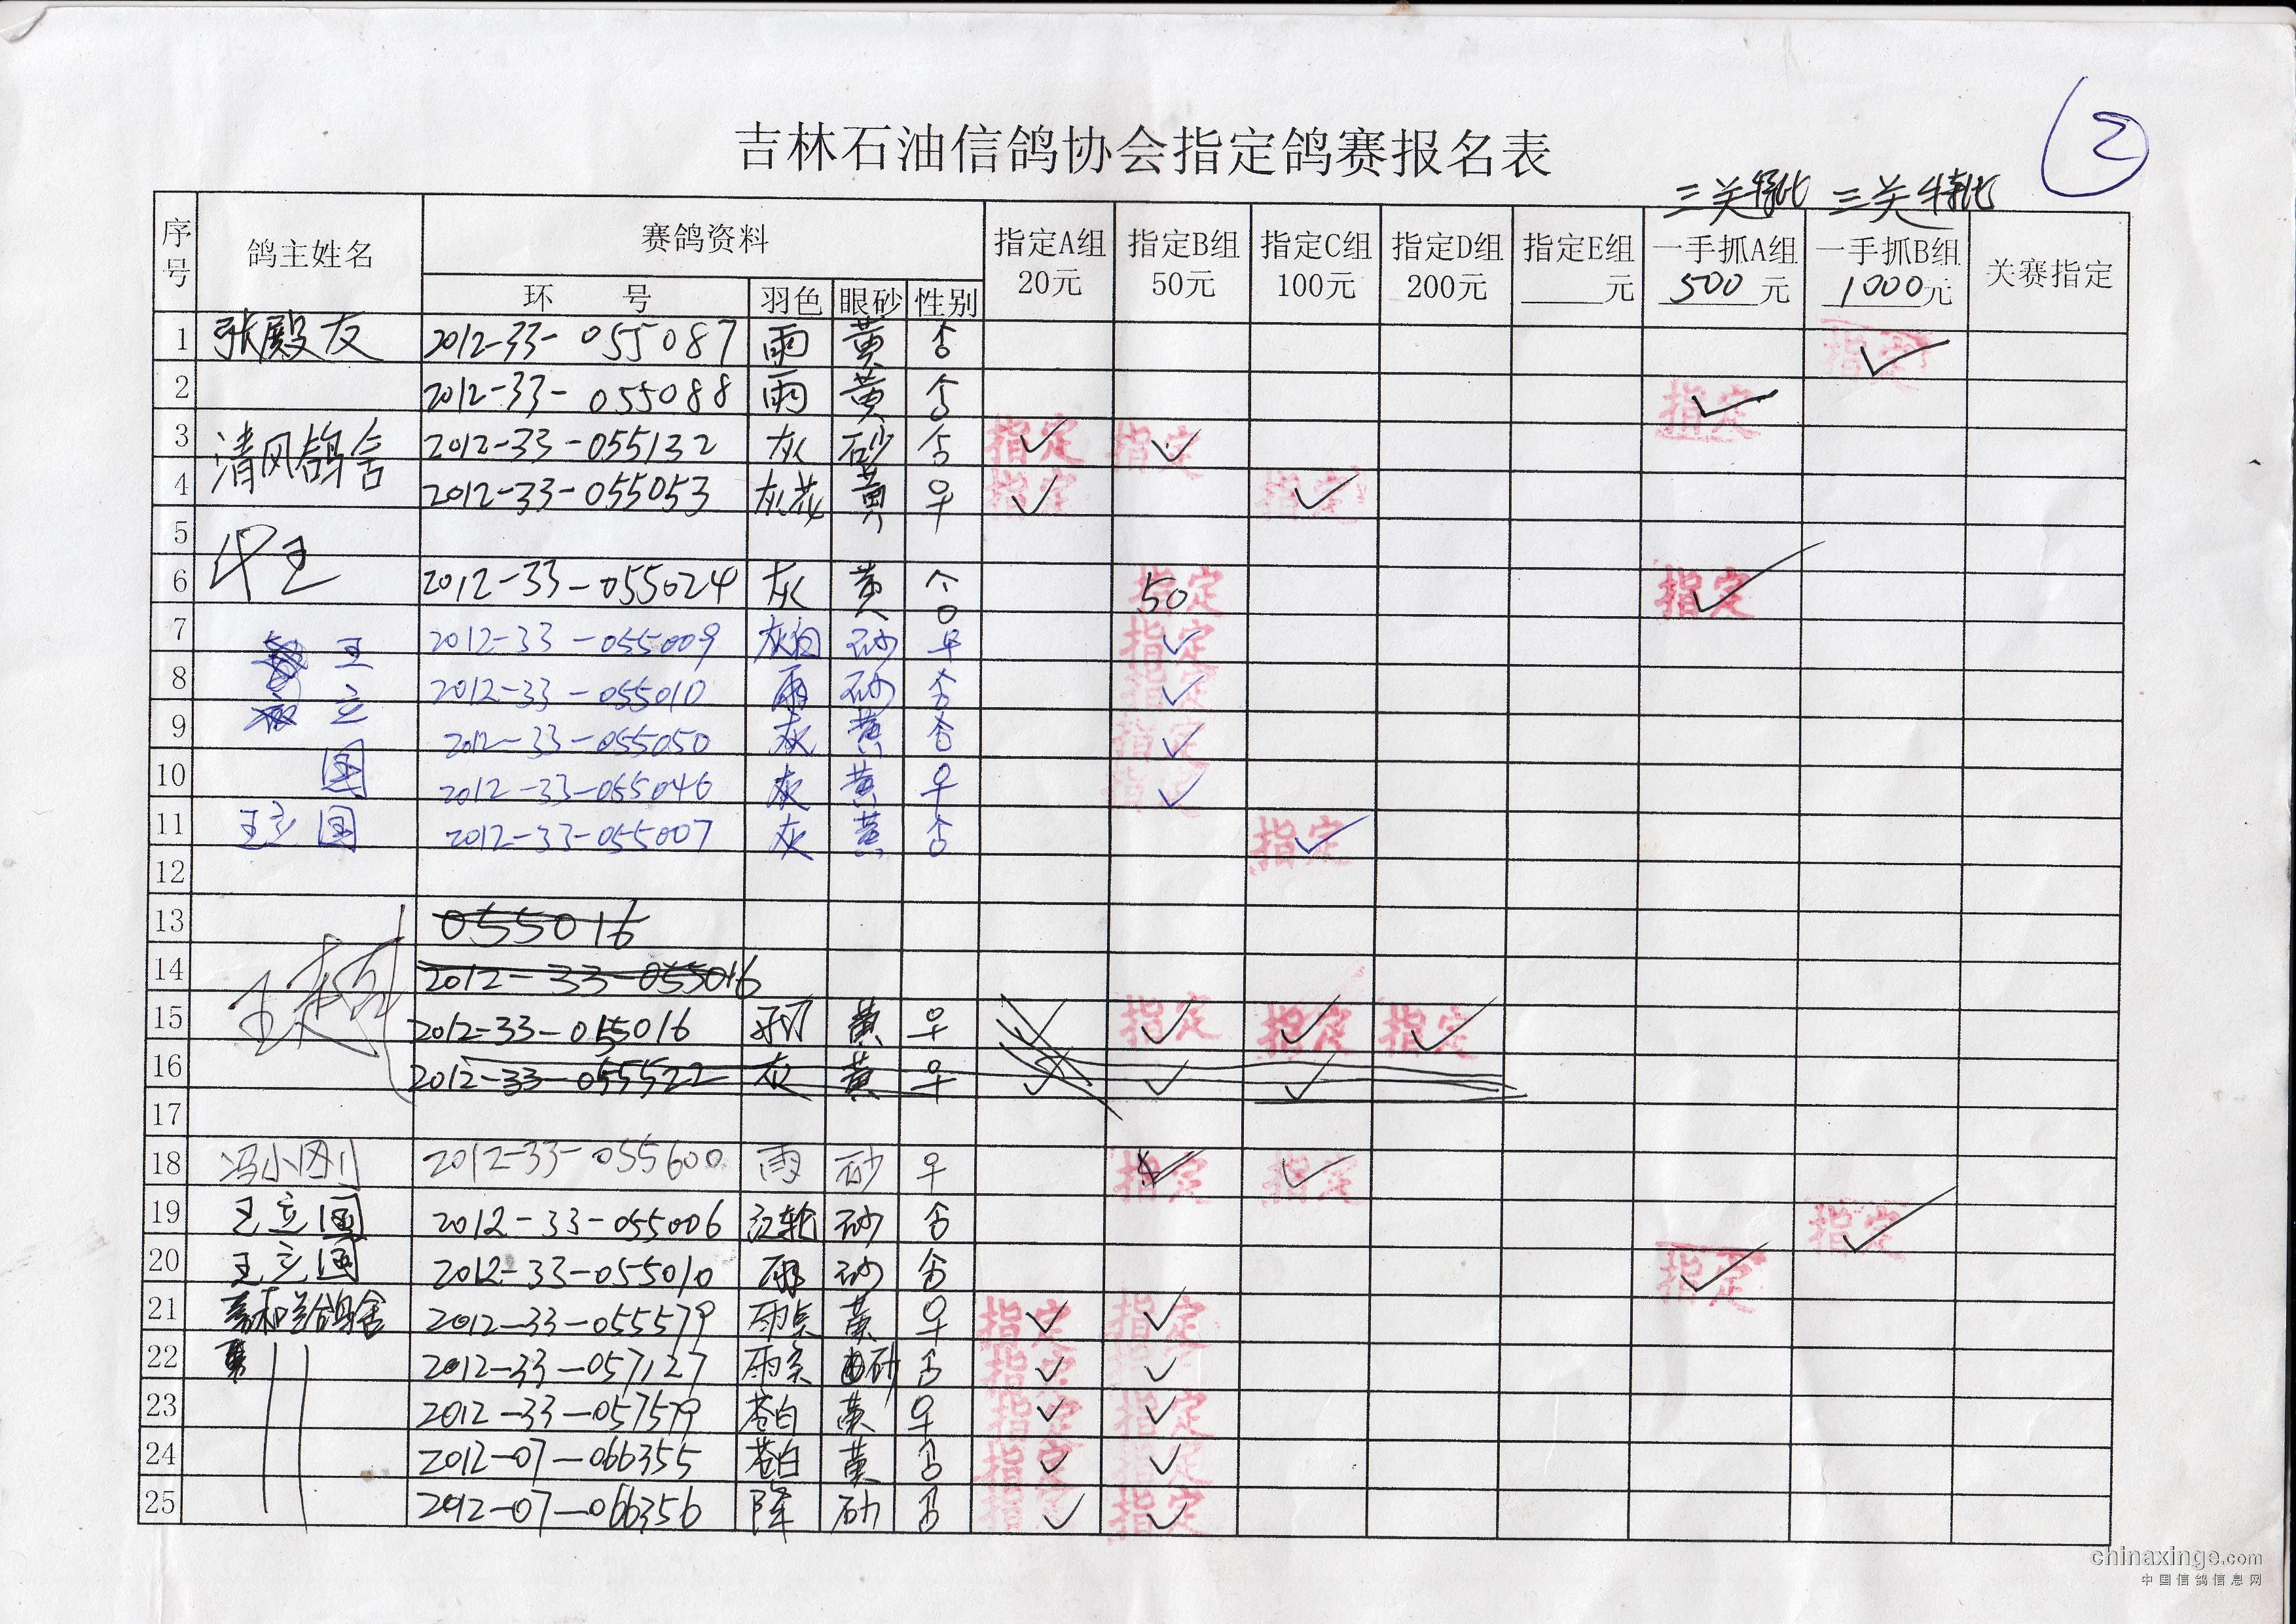 2
吉林石油信鸽协会指定鸽赛报名表
三关特比 三关特比
序号 鸽主姓名 赛鸽资料 指定A组 20元 指定B组 50元 指定C组 100元 指定D组 200元 指定E组 ____元 一手抓A组 500元 一手抓B组 1000元 关赛指定
环 号 羽色 眼砂 性别
1 张殿友 2012-33-055087 雨 黄 指定 ✓
2 2012-33-055088 雨 黄 指定 ✓
3 清风鸽舍 2012-33-055132 灰 砂 指定 ✓ 指定 ✓
4 2012-33-055053 灰花 黄 ♀ 指定 ✓ 指定 ✓
5
6 2012-33-055024 灰 黄 指定 50 指定 ✓
7 王 2012-33-055009 砂 ♀ 指定 ✓
8 立 2012-33-055010 雨 砂 指定 ✓
9 国 2012-33-055050 灰 黄 指定 ✓
10 2012-33-055046 灰 黄 ♀ 指定 ✓
11 王立国 2012-33-055007 灰 黄 指定 ✓
12
13 055016
14 2012-33-055016
15 2012-33-055016 黄 ♀ ✓ 指定 ✓ 指定 ✓ 指定 ✓
16 2012-33-055522 灰 黄 ♀ ✓ ✓ ✓
17
18 冯小刚 2012-33-055600 雨 砂 ♀ 指定 ✓ 指定 ✓
19 王立国 2012-33-055006 红轮 砂 指定 ✓
20 王立国 2012-33-055010 雨 砂 指定 ✓
21 鸽舍 2012-33-055579 黄 ♀ 指定 ✓ 指定 ✓
22 〃 2012-33-057127 砂 指定 ✓ 指定 ✓
23 2012-33-057579 苍白 黄 ♀ 指定 ✓ 指定 ✓
24 2012-07-066355 苍白 黄 指定 ✓ 指定 ✓
25 2012-07-066356 绛 砂 指定 ✓ 指定 ✓
chinaxinge.com
中国信鸽信息网